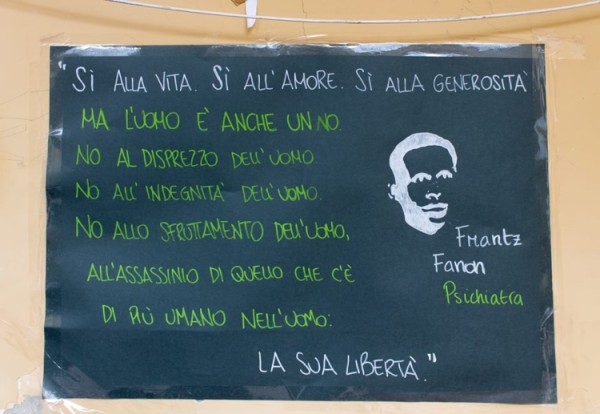 "SÌ ALLA VITA. SÌ ALL'AMORE. SÌ ALLA GENEROSITÀ
MA L'UOMO È ANCHE UN NO.
NO AL DISPREZZO DELL'UOMO.
NO ALL'INDEGNITÀ DELL'UOMO.
NO ALLO SFRUTTAMENTO DELL'UOMO,
ALL'ASSASSINIO DI QUELLO CHE C'È
DI PIÙ UMANO NELL'UOMO:
LA SUA LIBERTÀ."
Frantz
Fanon
Psichiatra